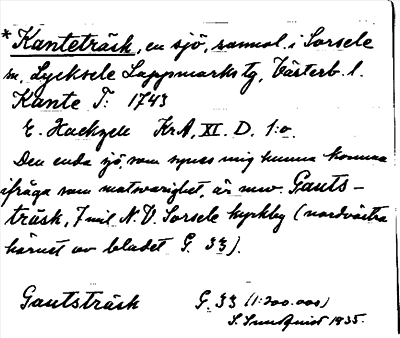 * Kanteträsk, en sjö, sannol. i Sorsele
sn, Lycksele Lappmarks tg, Västerb. l.
Kante T: 1743
E. Hackzell KrA, XI. D. 1:o.
Den enda sjö, som synes mig kunna komma
ifråga som motsvarighet, är nuv. Gauts-
träsk, 7 mil N.V. Sorsele kyrkby (nordvästra
hörnet av bladet G. 33).
Gautsträsk G. 33 (1:200.000)
S. Sundquist 1935.